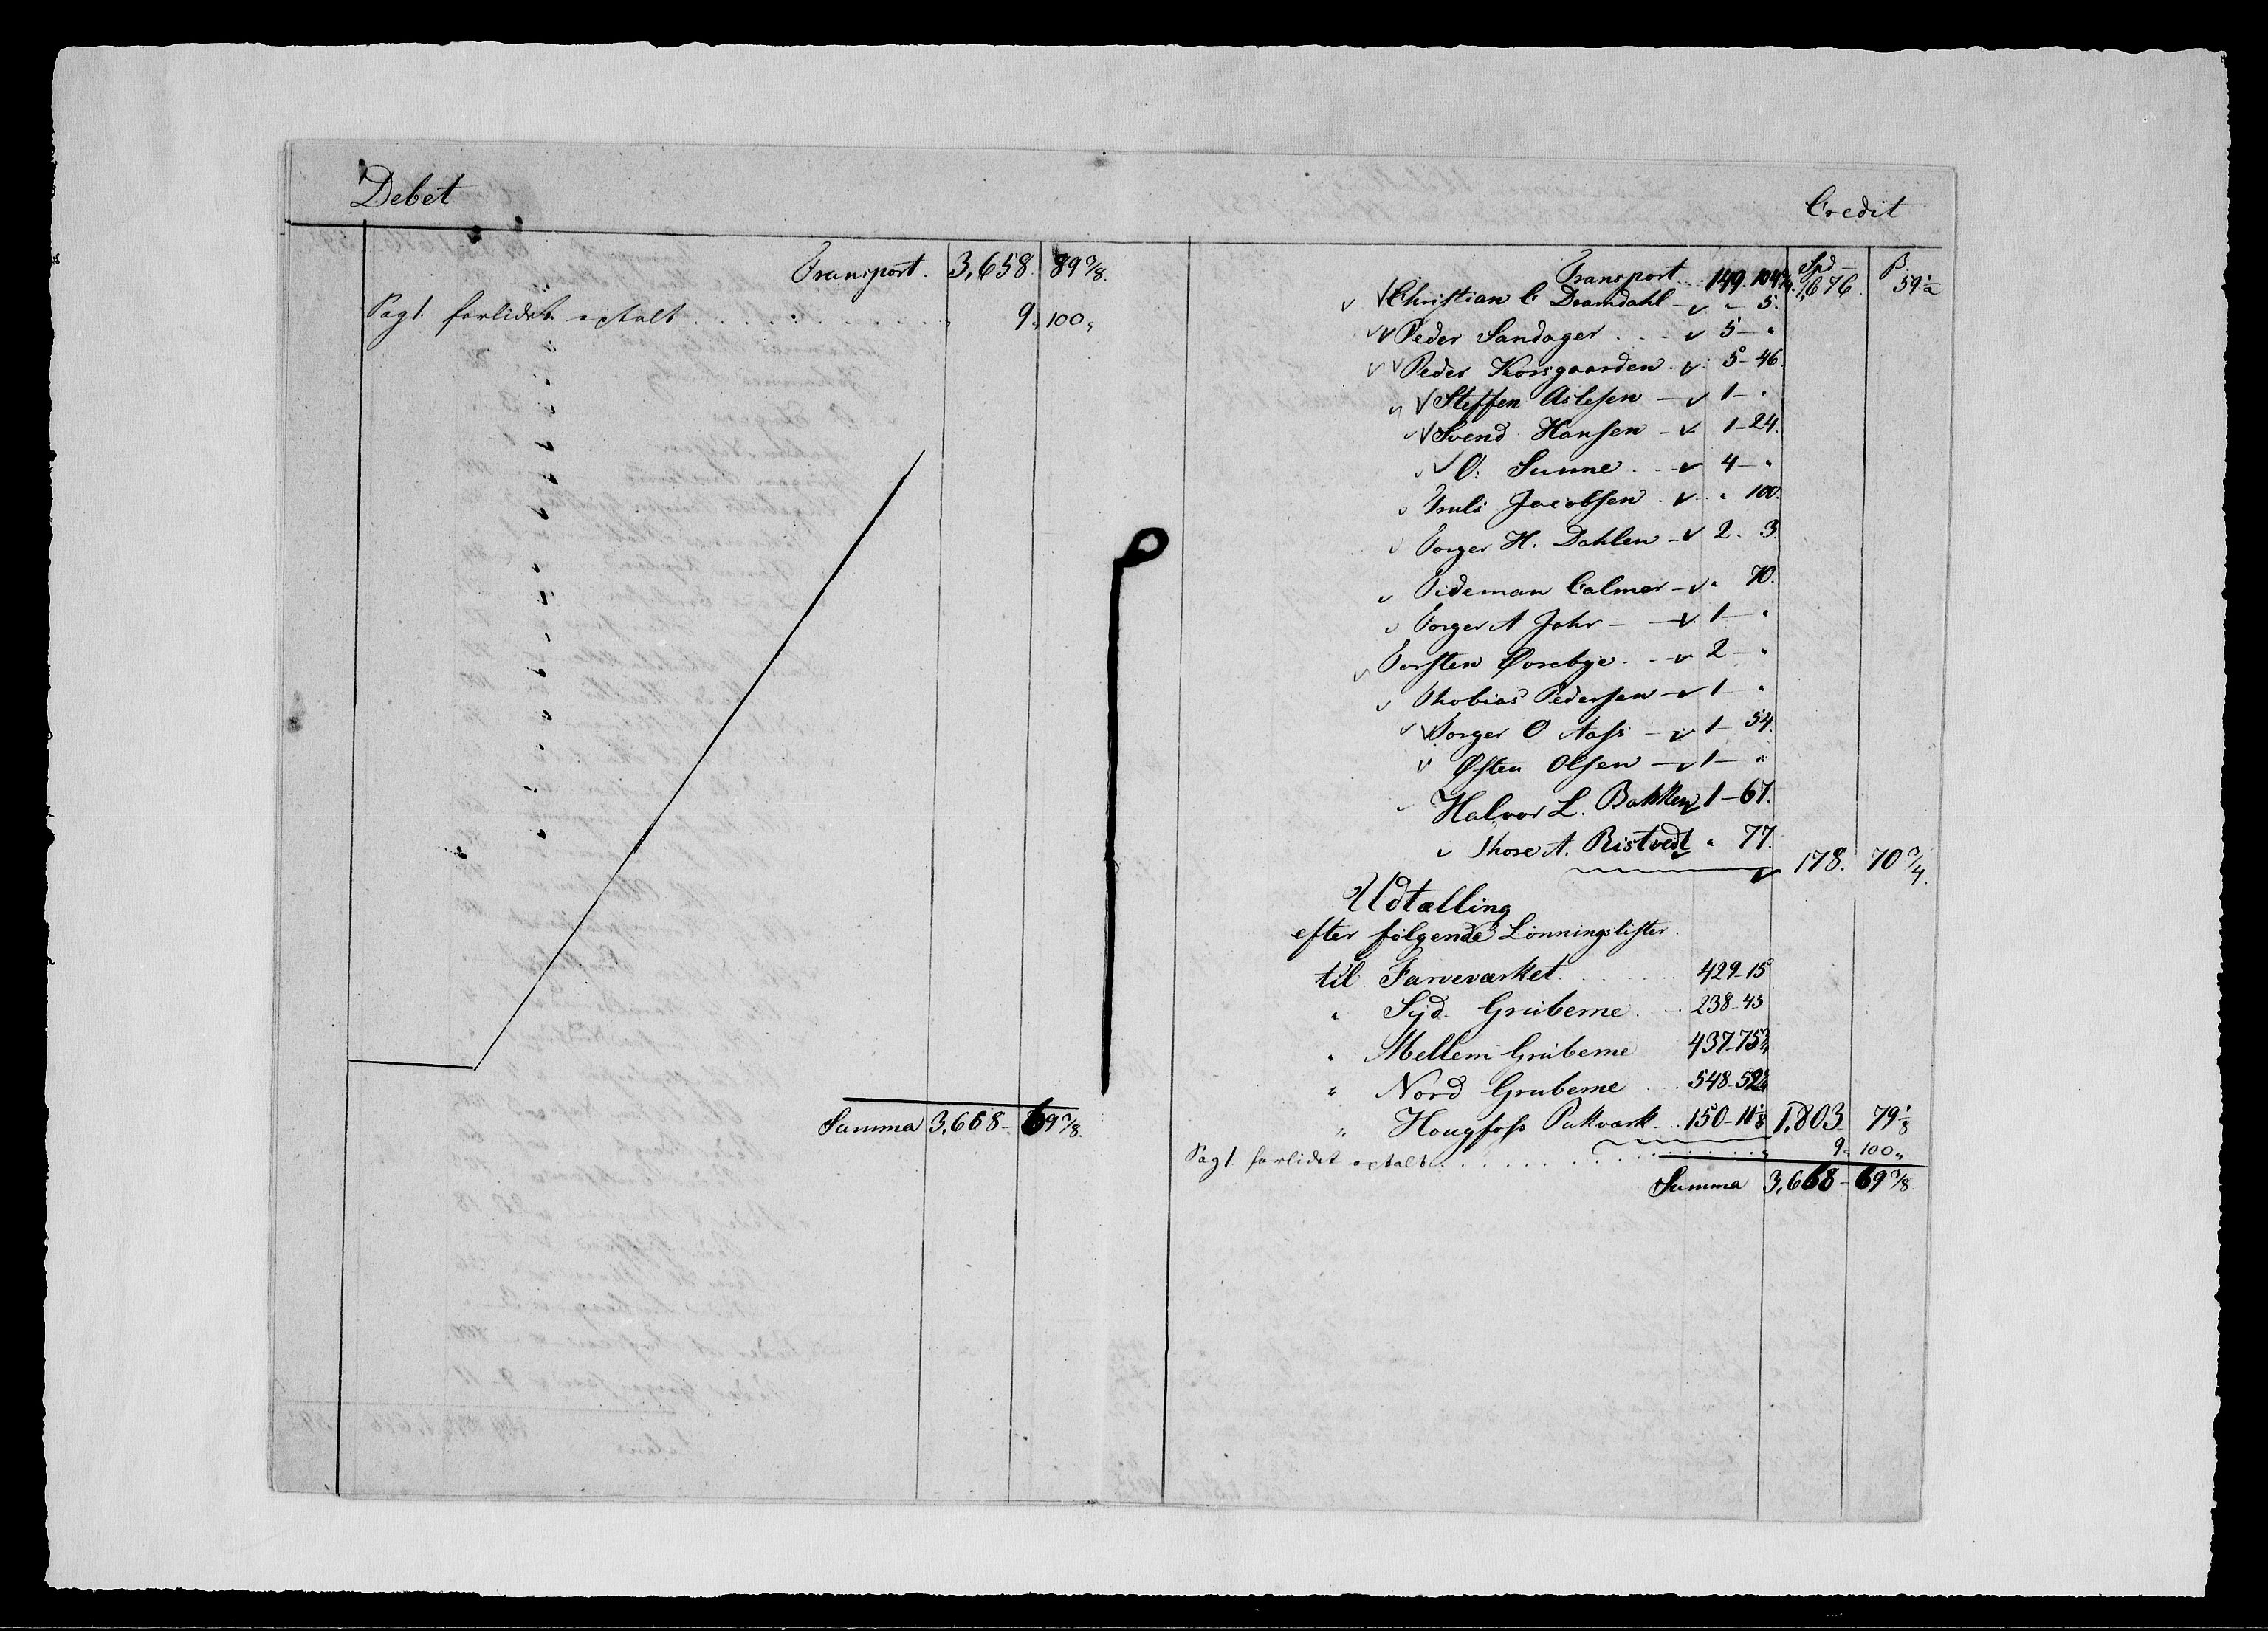 Debet
Transport. 3,658. 89 7/8.
Pag 1. forlidet optalt . . . . . . . 9. 100 „
Summa 3,668 – 69 7/8.
Credit
Spd – β
Transport . . 149. 104 3/4. 1,676. 59 1/2
Christian C Dramdahl – „ – 5.
Peder Sandager . . . 5 – „
Peder Korsgaarden . 5 – 46.
Steffen Aslesen – 1 – „
Svend Hansen – 1 – 24.
O: Sunne . . . 4 – „
Truls Jacobsen . „ 100.
Torger H. Dahlen – 2. 3.
Tideman Calmer – „ 70.
Torger A Johr – – 1 – „
Torsten Øvrebye . – 2 – „
Thobias Pedersen – 1 – „
Torger O Aass – 1 – 54.
Østen Olsen – 1 – „
Halvor L. Bakken 1 – 67.
Thore A. Ristvedt „ 77.
178. 70 3/4.
Udtælling
efter følgende Lønningslister.
til Farveværket . . . . . . 429 – 15
„ Syd. Gruberne . . . 238 – 45
„ Mellem Gruberne 437 – 75 3/4
„ Nord Gruberne . . . 548 – 52 1/4
„ Hougfoss Pukværk – . . 150 – 11 1/8 1,803 79 1/8
Pag 1. forlidet optalt . . . . . . . 9. 100 „
Summa 3,668 – 69 7/8.